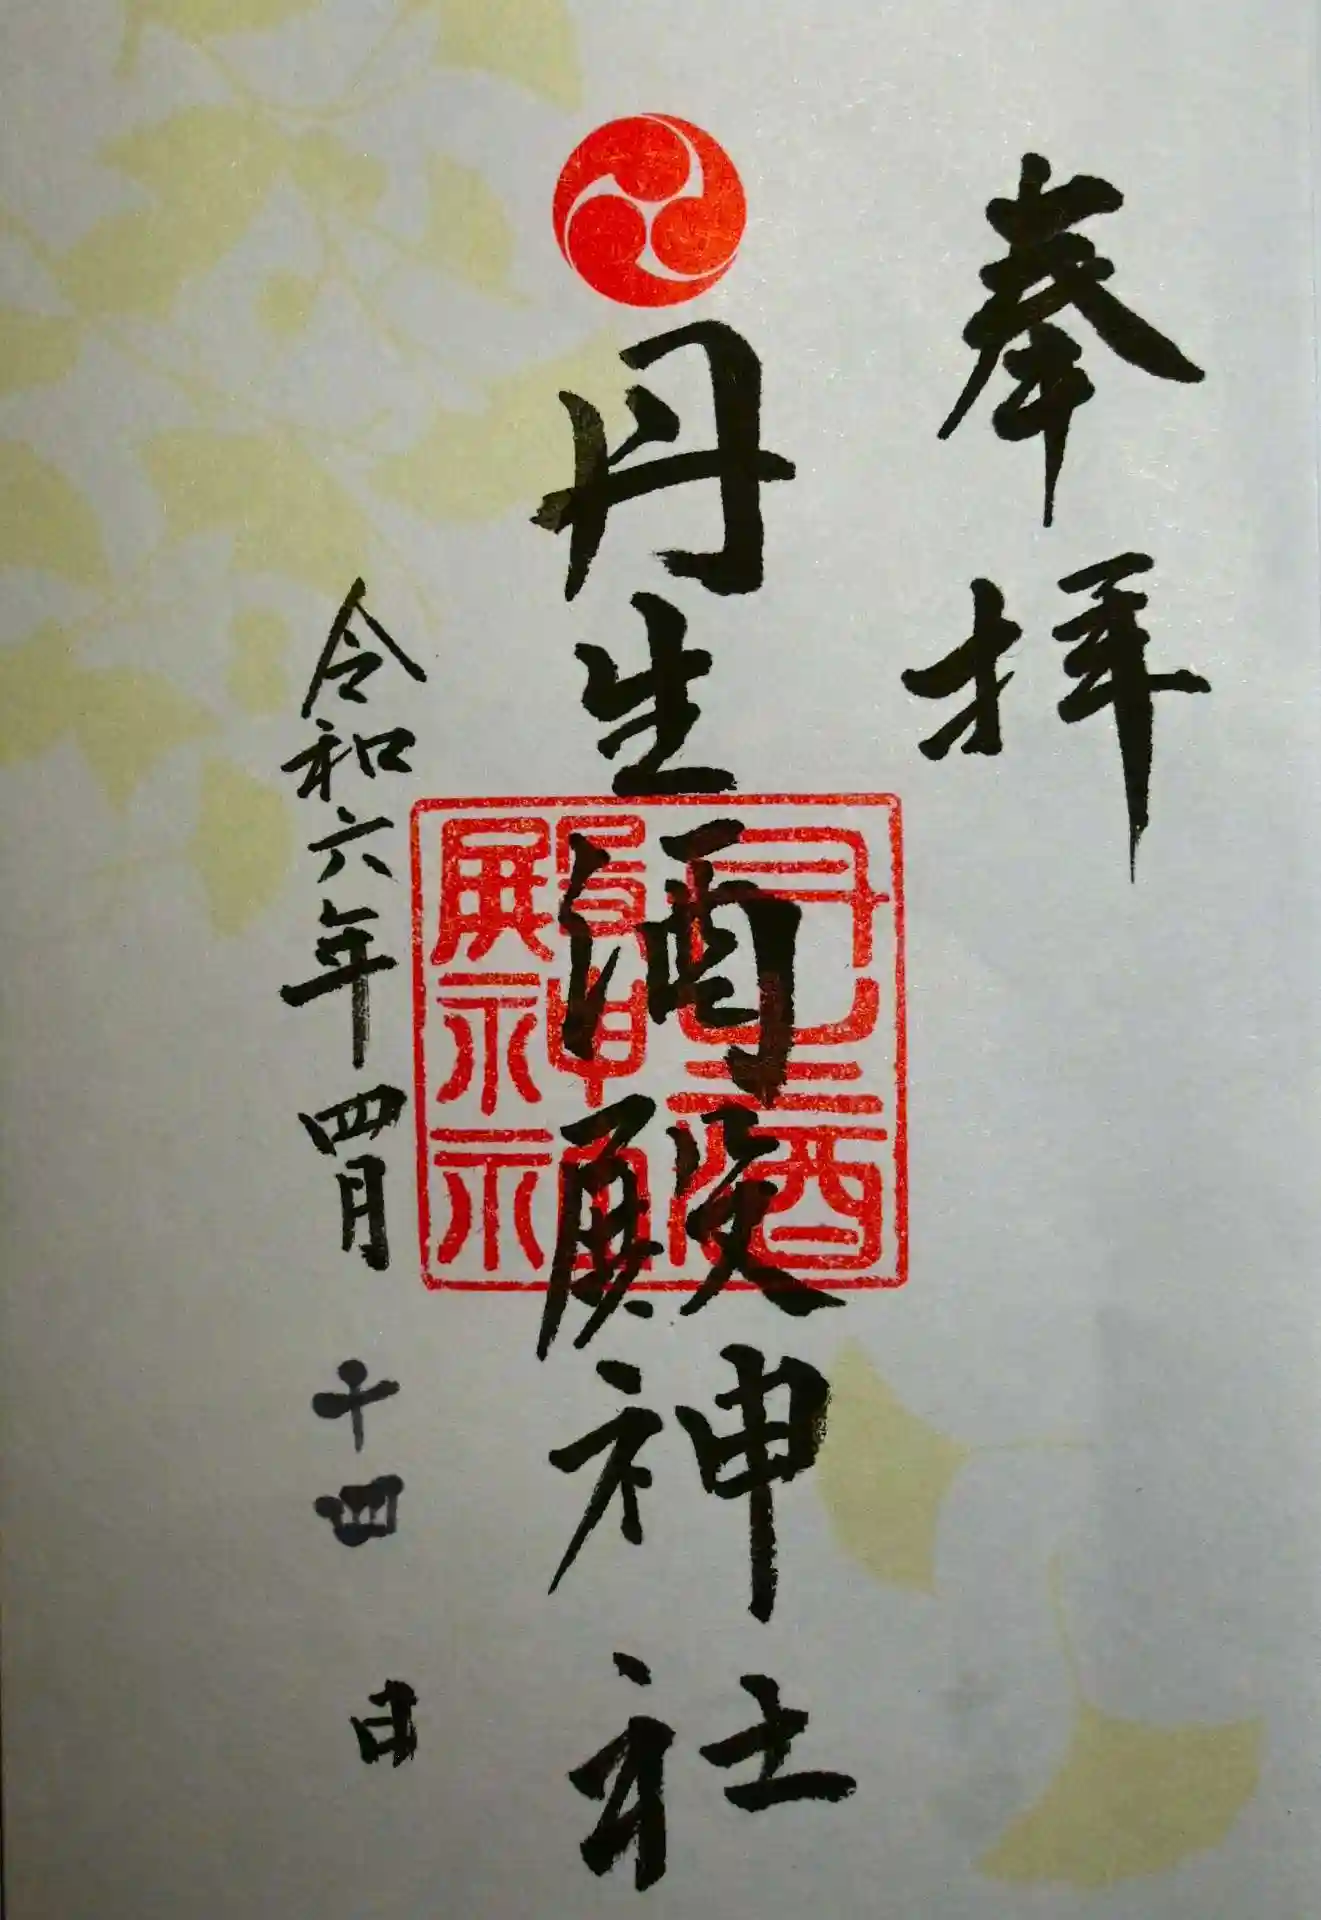 奉拝
丹生酒殿神社
丹生酒
殿神社
令和六年四月十四日